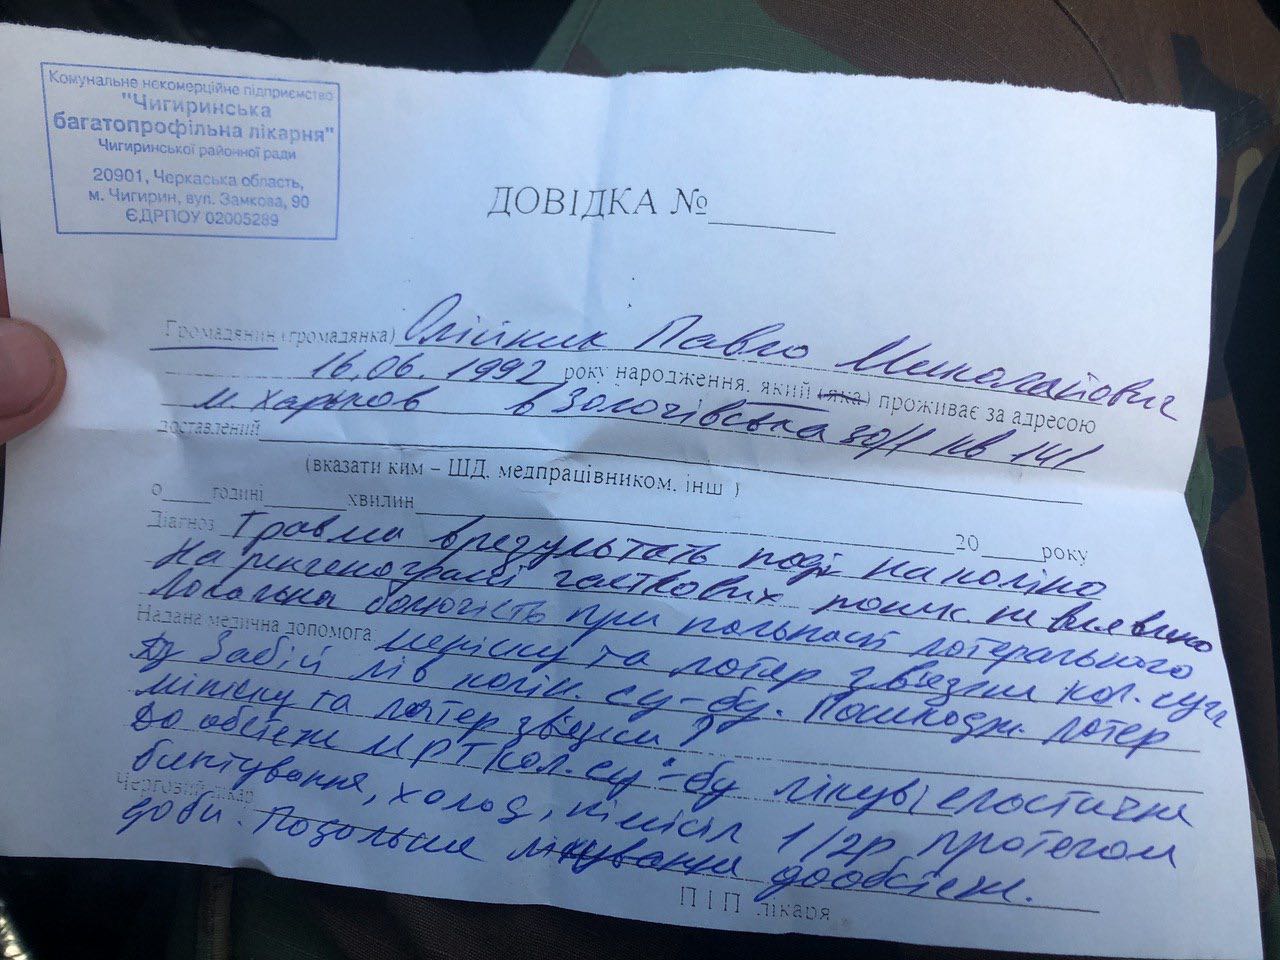 Комунальне некомерційне підприємство
"Чигиринська
багатопрофільна лікарня"
Чигиринської районної ради
20901, Черкаська область,
м. Чигирин, вул. Замкова, 90
ЄДРПОУ 02005289
ДОВІДКА №
Громадянин (громадянка) Олійник Павло Миколайович
16.06.1992 року народження, який (яка) проживає за адресою
м. Харьков в Золочівська 30/1 кв 141
доставлений
(вказати ким – ШД, медпрацівником, інш )
о годині хвилин 20 року
Діагноз Травма в результать поді на коліно
На ренгенограмі кісткових не виявлено
Локальна болючість при пальпації латерального
Надана медична допомога: меніску та латер звязки кол. суг
Забій лів колін. су-бу. Пошкодж. латер
меніску та латер звязки?
До обстеж МРТ кол. су-бу лікув, еластичне
бинтування, холод, німісіл 1/2р протягом
Черговий лікар
доби. Подальше лікування дообстеж.
П І П лікаря